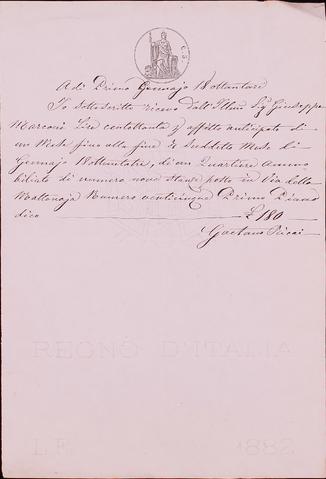 A dì Primo Gennajo 18ottantatre
Io sottoscritto ricevo dall'Illmo Sigr Giuseppe
Marconi Lire centottanta p affitto anticipato di
un Mese fino alla fine di suddetto Mese di
Gennajo 18ottantatre, di un Quartiere Ammo-
biliato di numero nove stanze posto in Via della
Mattonaja Numero venticinque Primo Piano
dico £ 180
Gaetano Ricci
REGNO D'ITALIA
1882